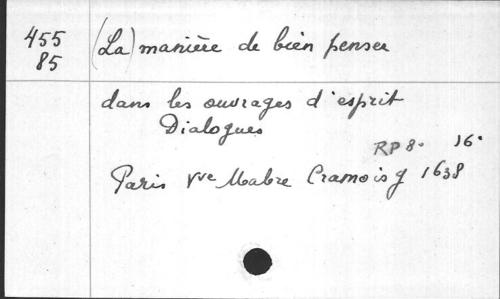 455 (La) manière de bien penser
85
dans les ouvrages d'esprit
Dialogues
RP 8° 16°
Paris Vve Mabre Cramoisy 1638